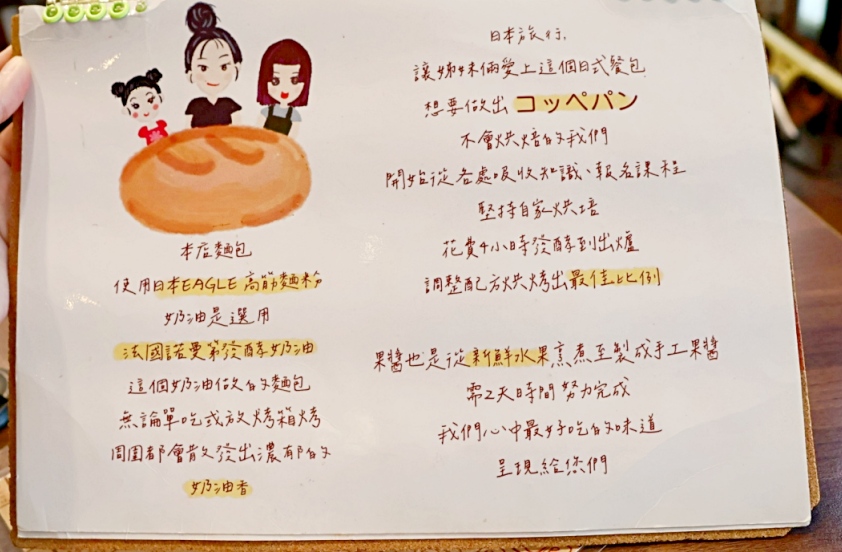 本店麵包
使用日本EAGLE 高筋麵粉
奶油是選用
法國諾曼第發酵奶油
這個奶油做的麵包
無論單吃或放烤箱烤
周圍都會散發出濃郁的
奶油香
日本旅行，
讓姊妹倆愛上這個日式餐包
想要做出 コッペパン
不會烘焙的我們
開始從各處吸收知識、報名課程
堅持自家烘培
花費4小時發酵到出爐
調整配方烘烤出最佳比例
果醬也是從新鮮水果烹煮至製成手工果醬
需2天時間 努力完成
我們心中最好吃的味道
呈現給您們